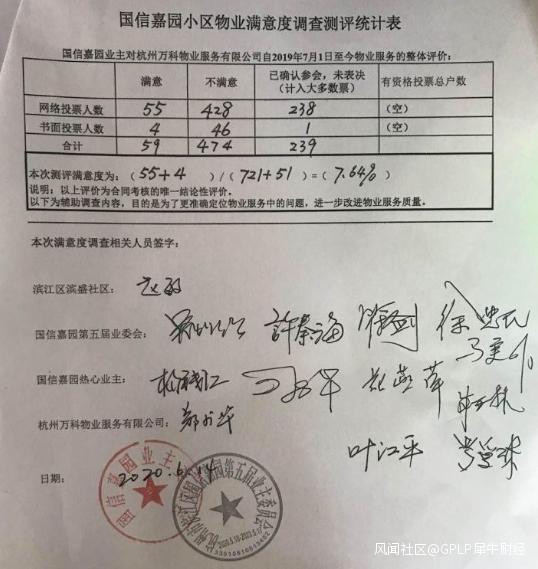 国信嘉园小区物业满意度调查测评统计表
国信嘉园业主对杭州万科物业服务有限公司自2019年7月1日至今物业服务的整体评价：
满意 不满意 已确认参会，未表决（计入大多数票） 有资格投票总户数
网络投票人数 55 428 238 （空）
书面投票人数 4 46 1 （空）
合计 59 474 239
本次测评满意度为：（55+4）/（721+51）=（7.64%）
说明：以上评价为合同考核的唯一结论性评价。
以下为辅助调查内容，目的是为了更准确定位物业服务中的问题，进一步改进物业服务质量。
本次满意度调查相关人员签字：
滨江区滨盛社区：
国信嘉园第五届业委会：許秦海
国信嘉园热心业主：
杭州万科物业服务有限公司：
叶江平
日期：2020.6.14
国信嘉园业主
国信嘉园第五届业主委员会
风闻社区@GPLP犀牛财经